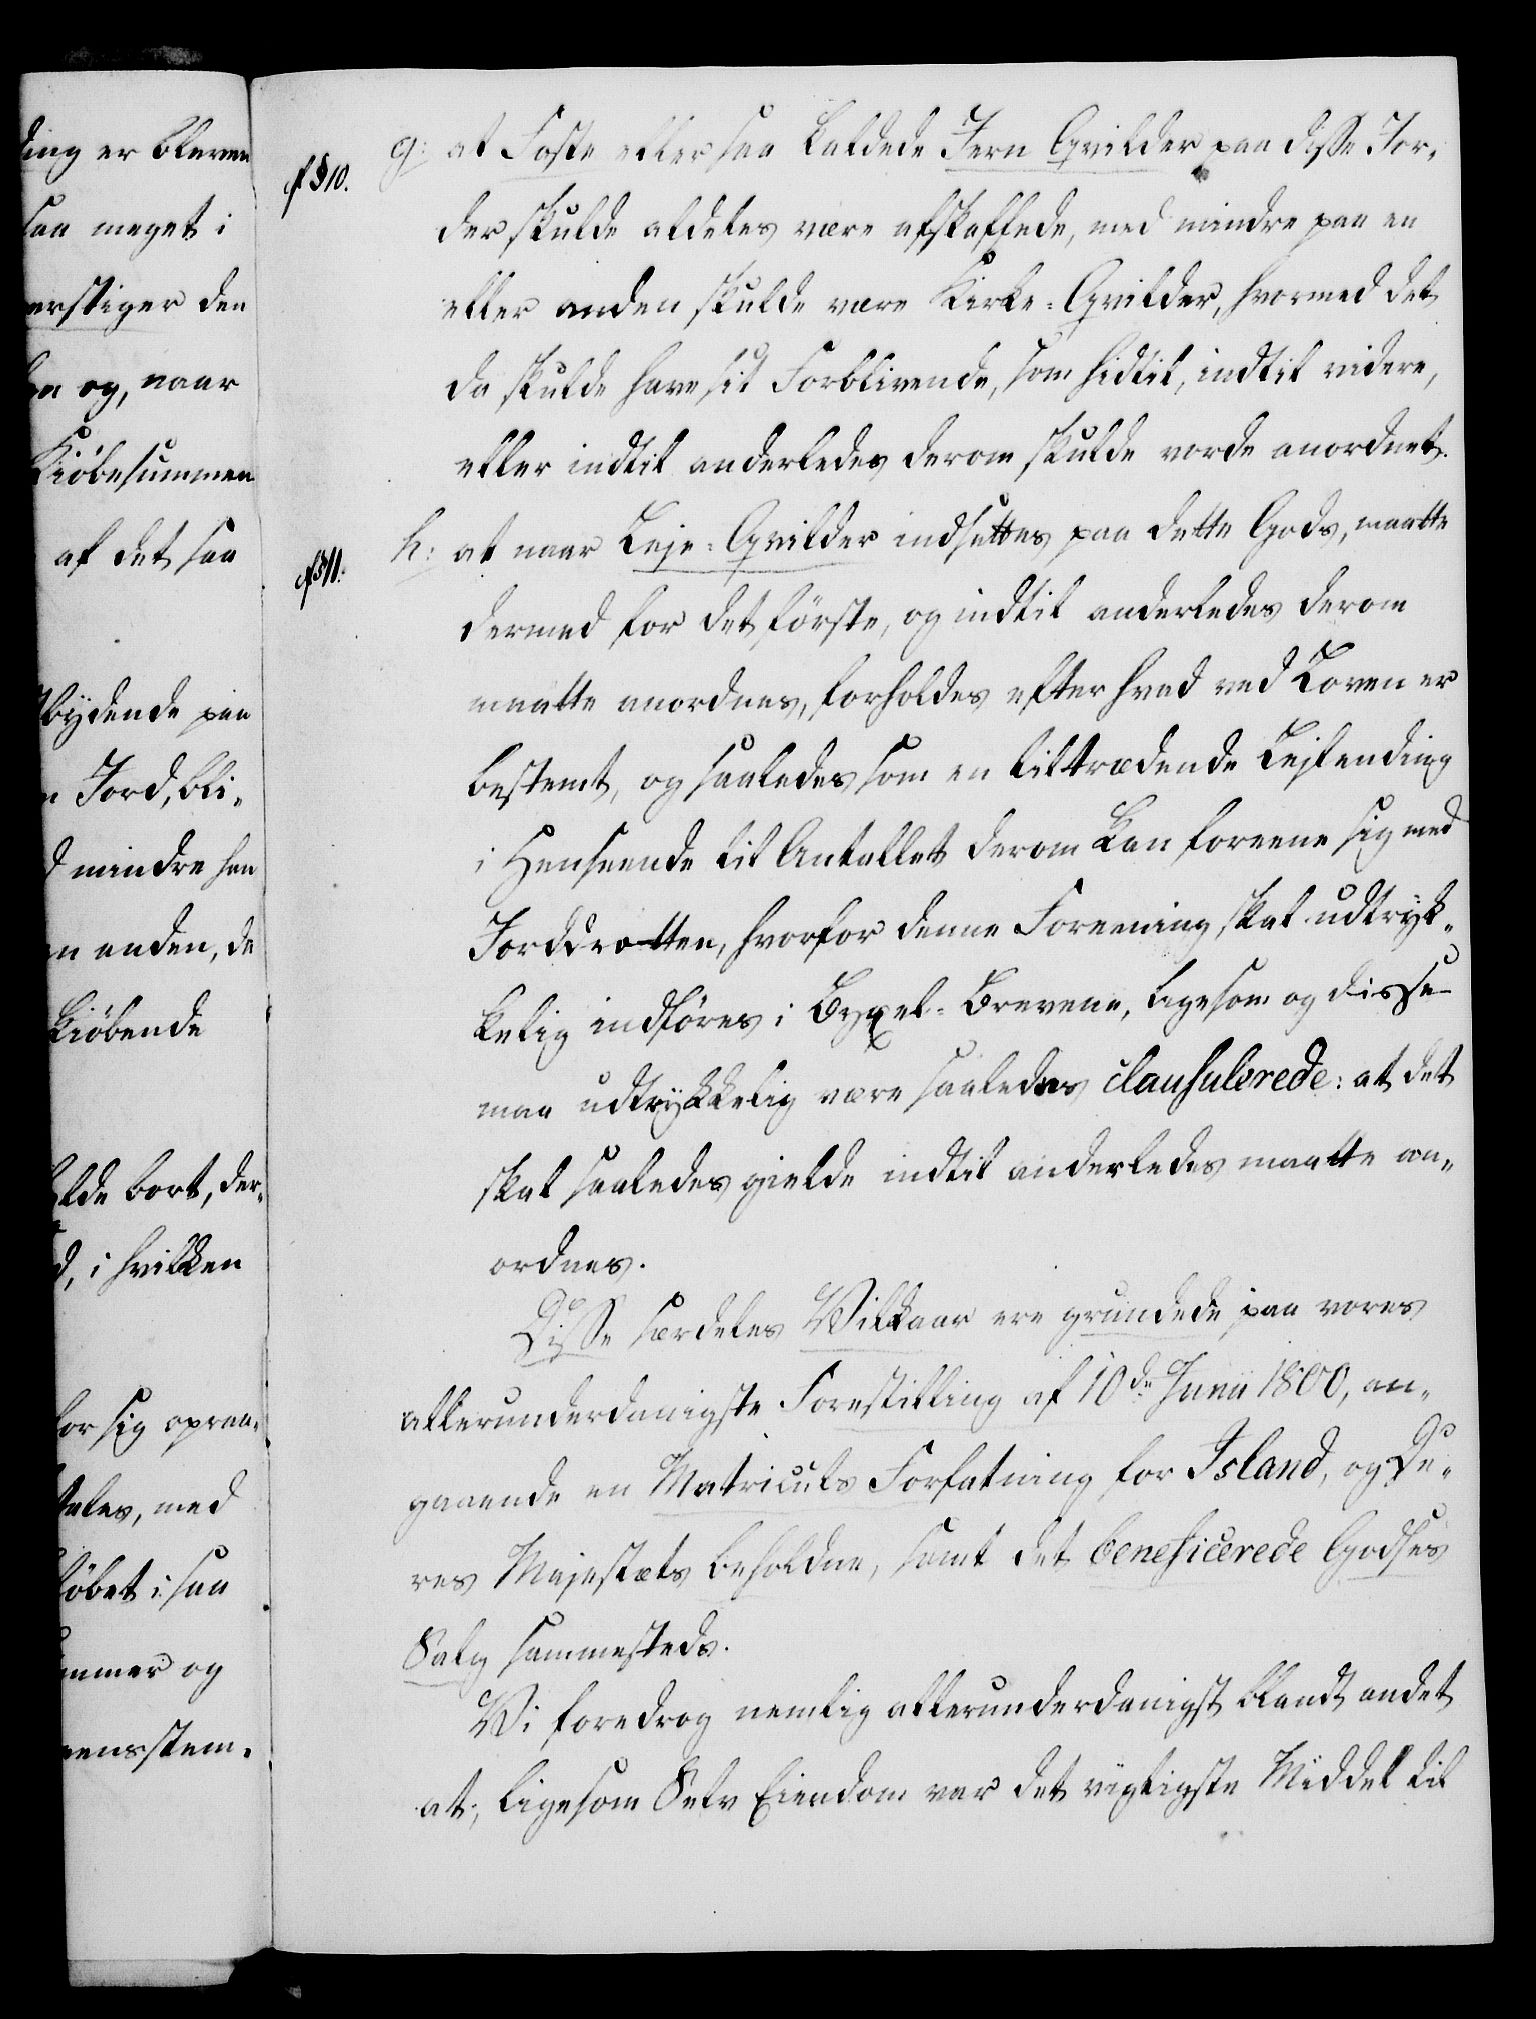 ding er bleven
saa meget i
erstiger den
og, naar
Kiöbesummen
af det saa
bydende paa
Jord, bli-
mindre han
anden, de
Kiöbende
bort, der-
i hvilken
for sig opraa-
med
i saa
og
eensstem-
cf § 10.
g: at Faste eller saa kaldede Jern Qvilder paa disse Jor-
der skulde aldeles være afskaffede, med mindre paa en
eller anden skulde være Kirke-Qvilder, hvormed det
da skulde have sit Forblivende, som hidtil, indtil videre,
eller indtil anderledes derom skulde vorde anordnet.
cf § 11.
h: at naar Leje-Qvilder indsættes paa dette Gods, maatte
dermed for det förste, og indtil anderledes derom
maatte anordnes, forholdes efter hvad ved Loven er
bestemt, og saaledes som en tiltrædende Leilending
i Henseende til Antallet derom kan foreene sig med
Jorddrotten, hvorfor denne Foreening skal udtryk-
kelig indföres i Byxel-Brevene, ligesom og disse
maa udtrykkelig være saaledes clausulerede: at det
skal saaledes gielde indtil anderledes maatte an-
ordnes.
Disse særdeles Vilkaar ere grundede paa vores
allerunderdanigste Forestilling af 10de Junii 1800, an-
gaaende en Matriculs Forfatning for Island, og De-
res Majestæts beholdne, samt det beneficerede Godses
Salg sammesteds.
Vi foredrog nemlig allerunderdanigst blandt andet
at, ligesom Selv Eiendom var det vigtigste Middel til